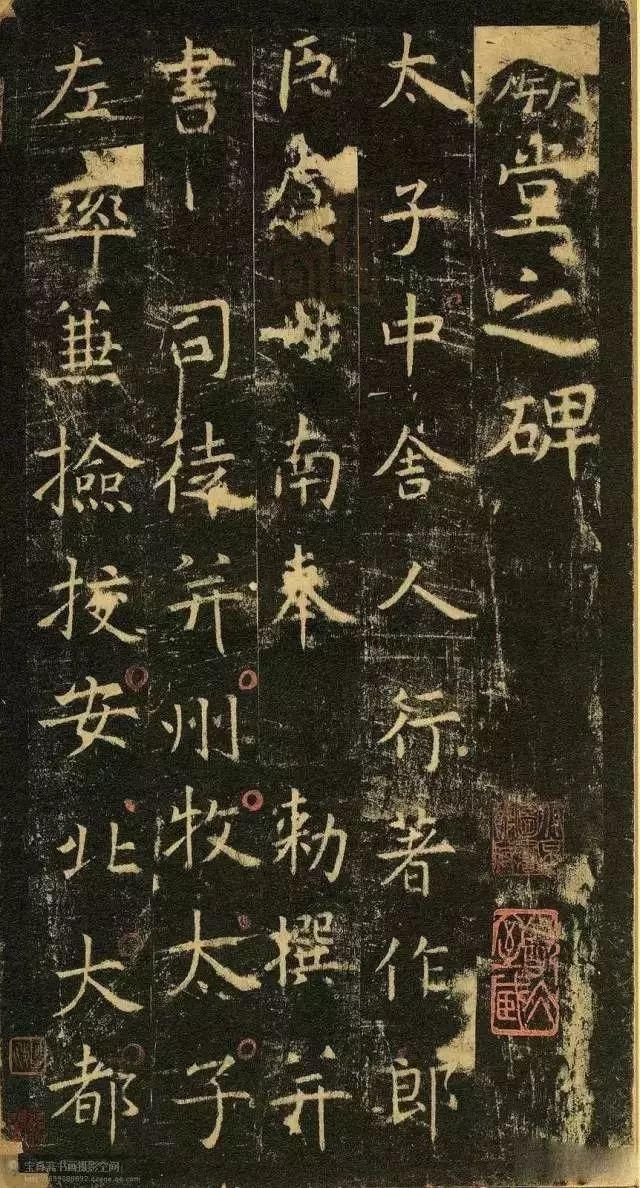 堂之碑
太子中舎人行著作郎
臣虞世南奉勅撰并
書司徒并州牧太子
左率兼撿挍安北大都